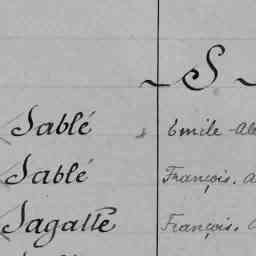 ~ S ~
Sablé Emile
Sablé François.
Sagatté François.